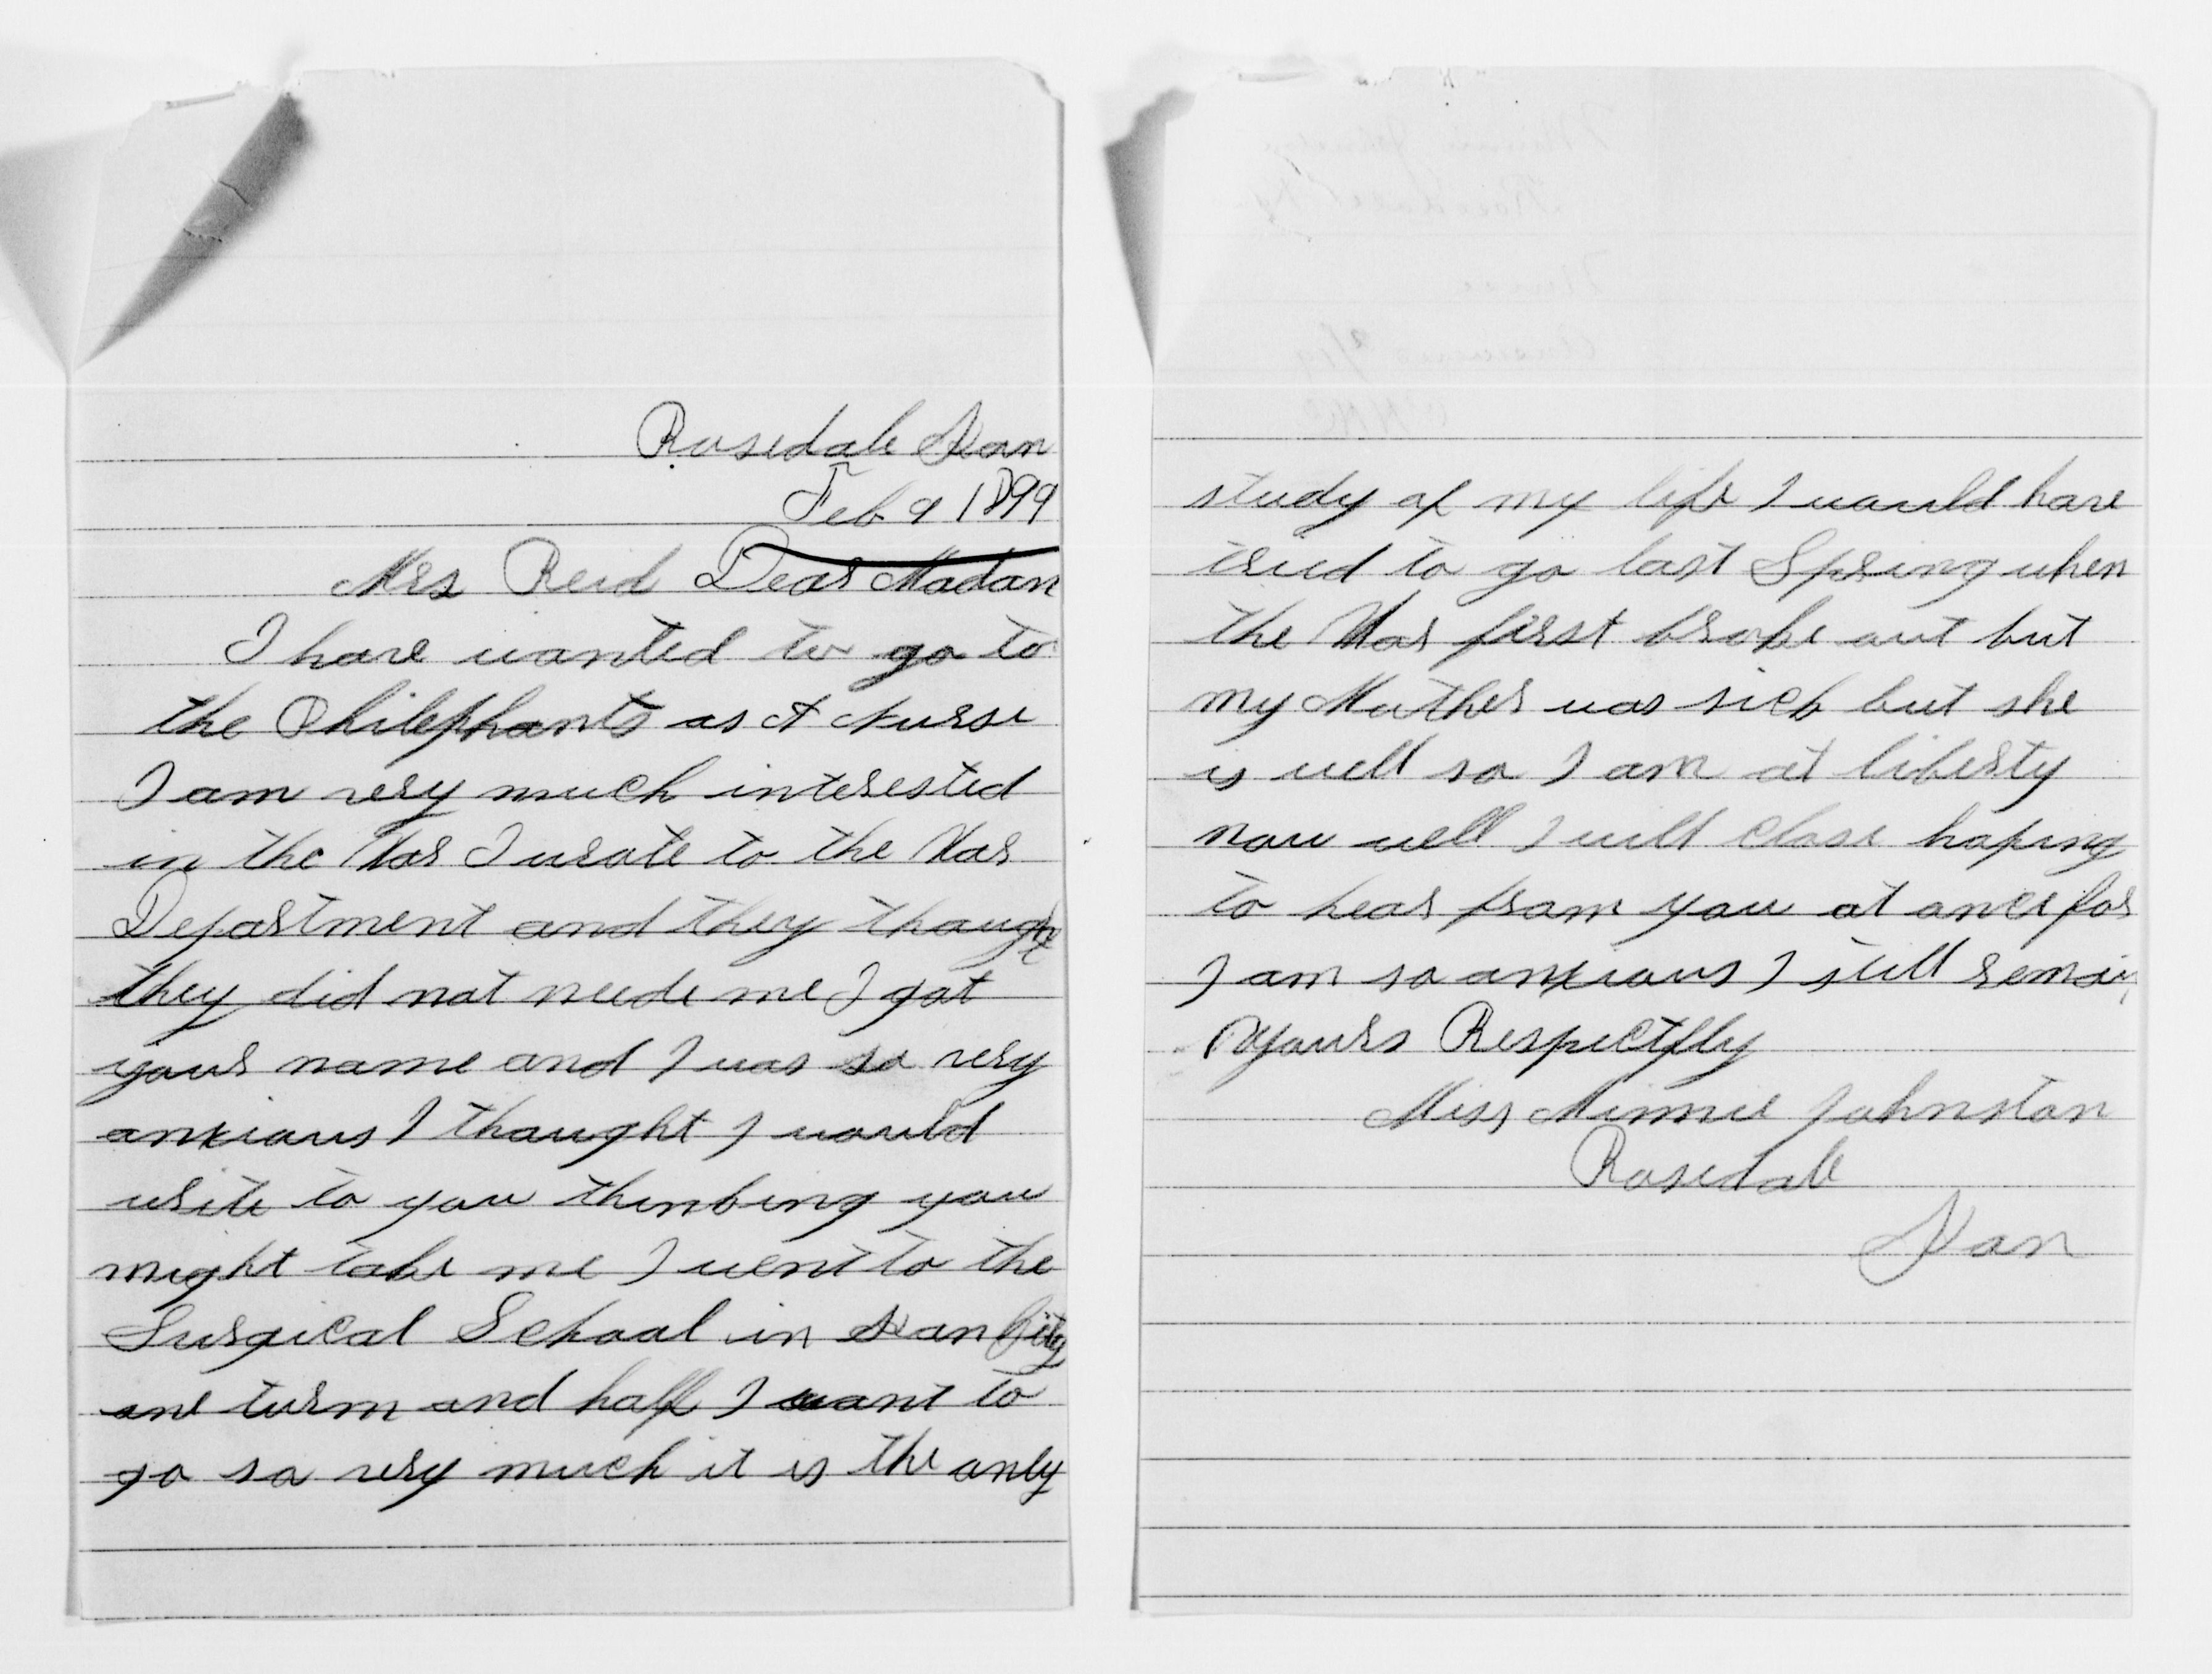 Rosedale Kan
Feb 9 1899
Mrs Reid Dear Madam
I have wanted to go to
the Philephants as A Nurse
I am very much interested
in the War I wrote to the War
Department and they thought
they did not neede me I got
your name and I was so very
anxious I thought I would
write to you thinking you
might take me I went to the
Surgical School in Kan City
one turm and half I want to
go so very much it is the only
study of my life I would have
tried to go last Spring when
the War first broke out but
my Mother was sick but she
is well so I am at liberty
now well I will close hoping
to hear from you at once for
I am so anxious I still remain
Yours Respectfly
Miss Minnie Johnston
Rosedale
Kan